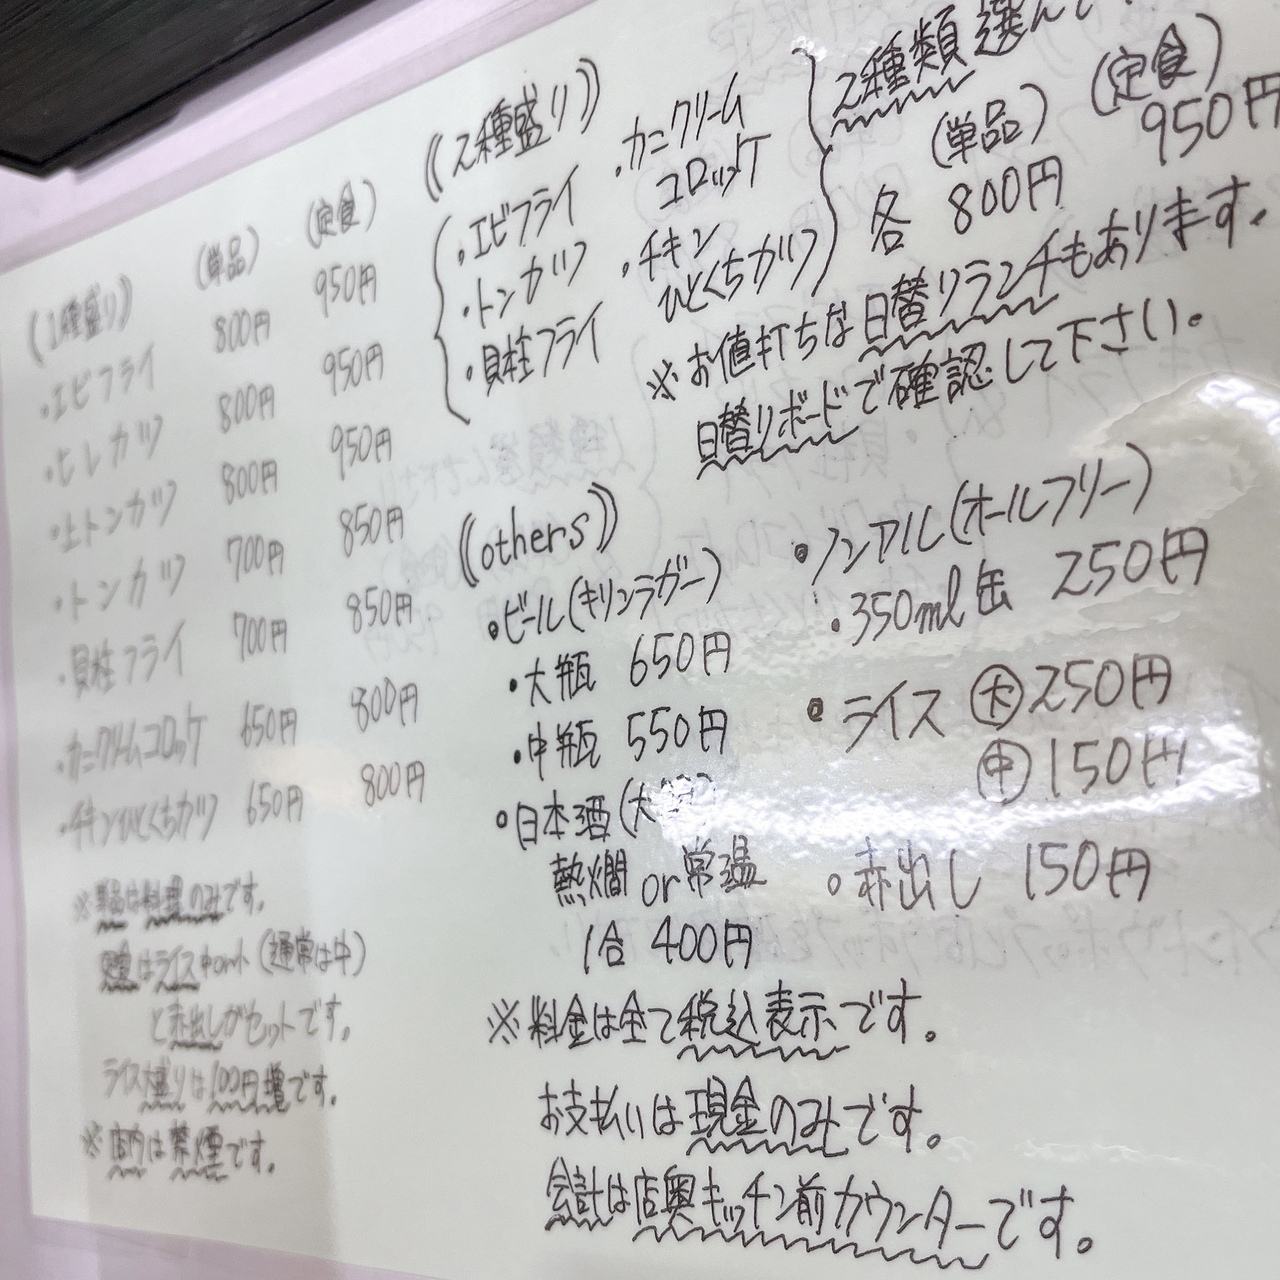 (1種盛り) (単品) (定食)
・エビフライ 800円 950円
・ヒレカツ 800円 950円
・上トンカツ 800円 950円
・トンカツ 700円 850円
・貝柱フライ 700円 850円
・カニクリームコロッケ 650円 800円
・チキンひとくちカツ 650円 800円
※単品は料理のみです。
定食はライス中or小(通常は中)
と赤出しがセットです。
ライス大盛りは100円増です。
※店内は禁煙です。
《2種盛り》
・エビフライ
・トンカツ
・貝柱フライ
・カニクリーム
コロッケ
・チキン
ひとくちカツ
2種類選んで
(単品) (定食)
各 800円 950円
※お値打ちな日替りランチもあります。
日替りボードで確認して下さい。
《others》
・ビール(キリンラガー)
・大瓶 650円
・中瓶 550円
・日本酒(大
熱燗 or 常温
1合 400円
・ノンアル(オールフリー)
・350ml缶 250円
・ライス 大 250円
中 150円
・赤出し 150円
※料金は全て税込表示です。
お支払いは現金のみです。
会計は店奥キッチン前カウンターです。